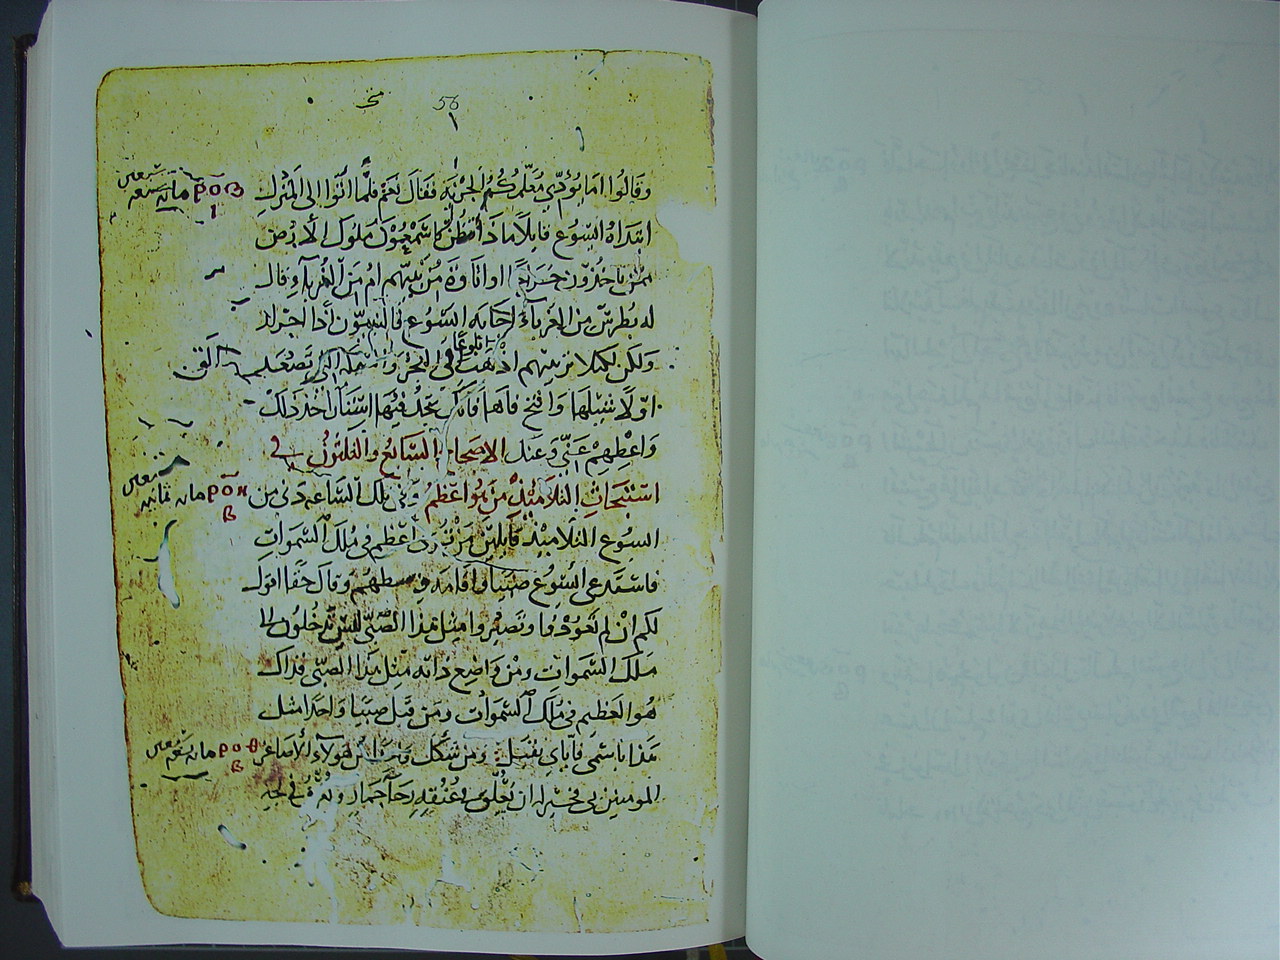 56
وقالوا اما يؤدّي معلّمكُمُ الجزيه فقال نعم فلمّا اتوا الى المنزل
ابتداهُ ايسوع قايلاً ماذا تظنّ يا سمعون ملوك الارض
ممّن ياخذون جزية او اتاوة مِن بنيهم ام مِن الغرباء قال
له بطرس من الغرباء اجابه ايسوع فالبنون اذا احرار
ولكن لكيلا نريبهم اذهب الى البحر والق
اوّلاً شبلها وافتح فاها فانك تجد فيها استتار اخذ ذلك
واعطِهم عنّي وعنك الاصحاح السابع والثلثون في
استبحاث التلاميذ من هو اعظم وفي تلك الساعه دنى من
ايسوع التلاميذ قايلين مَن تُرى اعظم في ملك السموات
فاستدعى ايسوع صبيا واقامه في وسطهم وقال حقا اقول
لكم ان لم تعودوا وتصيروا مثل هذا الصبّي لن تدخلون الا
ملك السموات ومن واضع ذاته مثل هذا الصبّي فذاك
هو العظيم في ملك السموات ومن قبل صبيا واحدا مثل
هذا باسمي فايّاي يقبل ومن شكّك واحدا من هولاء الاصاغر
المومنين بي فخير له ان يُعلّق في عُنُقِهِ رحا حمار
ρ̅ο̅β
ρ̅ο̅η
β
ρ̅ο̅θ
β